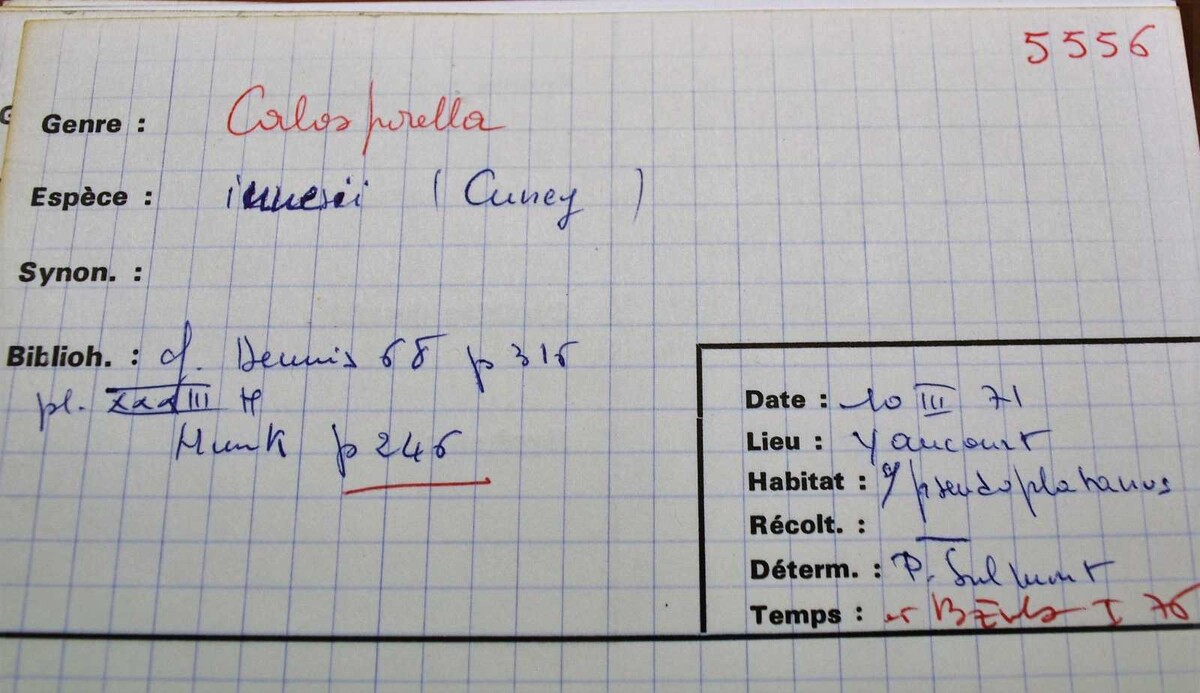 5556
Genre : Calosporella
Espèce : innesii (Currey)
Synon. :
Biblioh. : cf. Dennis 68 p 316
pl. XXXIII H
Munk p 246
Date : 10 III 71
Lieu : Yaucourt
Habitat : s/ pseudoplatanus
Récolt. : —
Déterm. : P. Sulmont
Temps : I 76